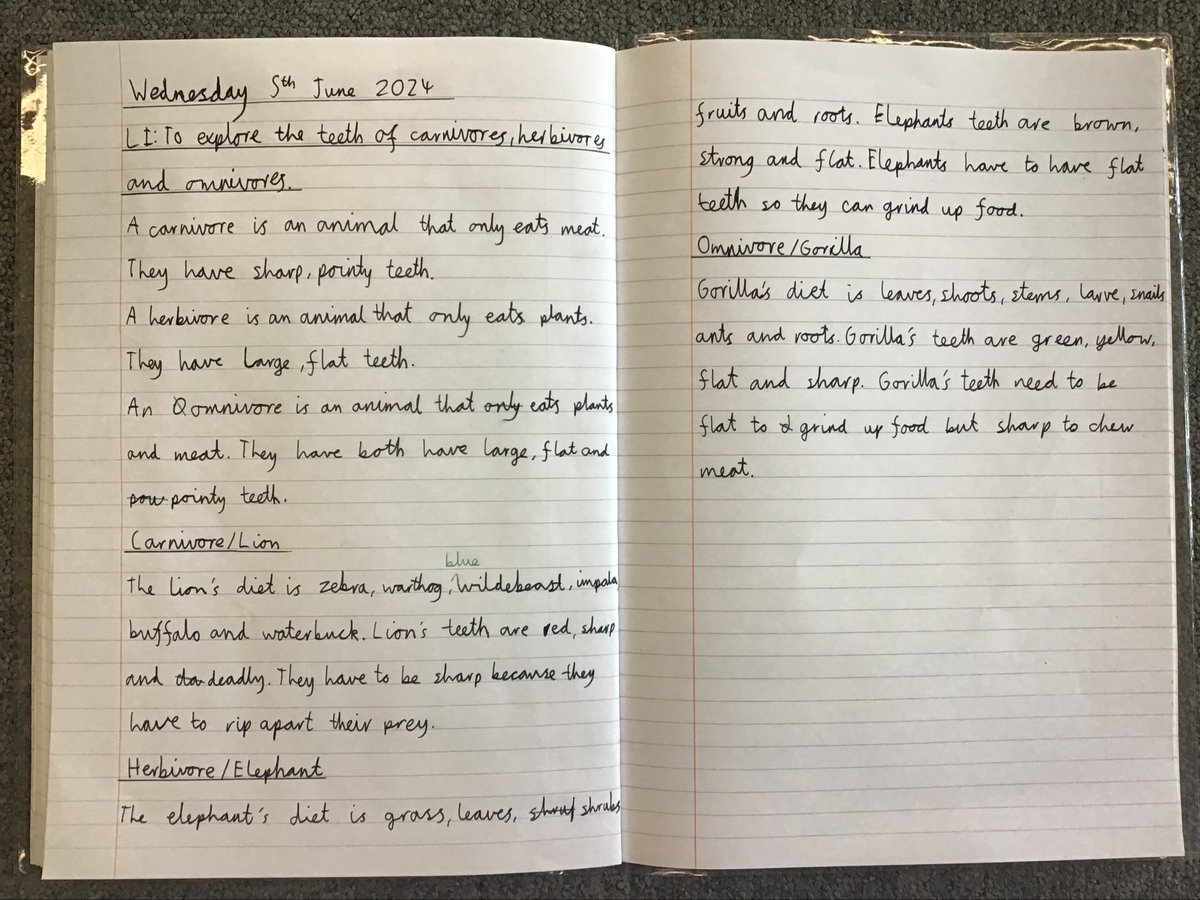 Wednesday 5th June 2024
LI: To explore the teeth of carnivores, herbivores
and omnivores.
A carnivore is an animal that only eats meat.
They have sharp, pointy teeth.
A herbivore is an animal that only eats plants.
They have large, flat teeth.
An omnivore is an animal that only eats plants
and meat. They have both have large, flat and
pow pointy teeth.
Carnivore/Lion
blue
The lion's diet is zebra, warthog, wildebeast, impala,
buffalo and waterbuck. Lion's teeth are red, sharp
and da deadly. They have to be sharp because they
have to rip apart their prey.
Herbivore/Elephant
The elephant's diet is grass, leaves, shruf shrubs
fruits and roots. Elephants teeth are brown,
strong and flat. Elephants have to have flat
teeth so they can grind up food.
Omnivore/Gorilla
Gorilla's diet is leaves, shoots, stems, larve, snails
ants and roots. Gorilla's teeth are green, yellow,
flat and sharp. Gorilla's teeth need to be
flat to grind up food but sharp to chew
meat.